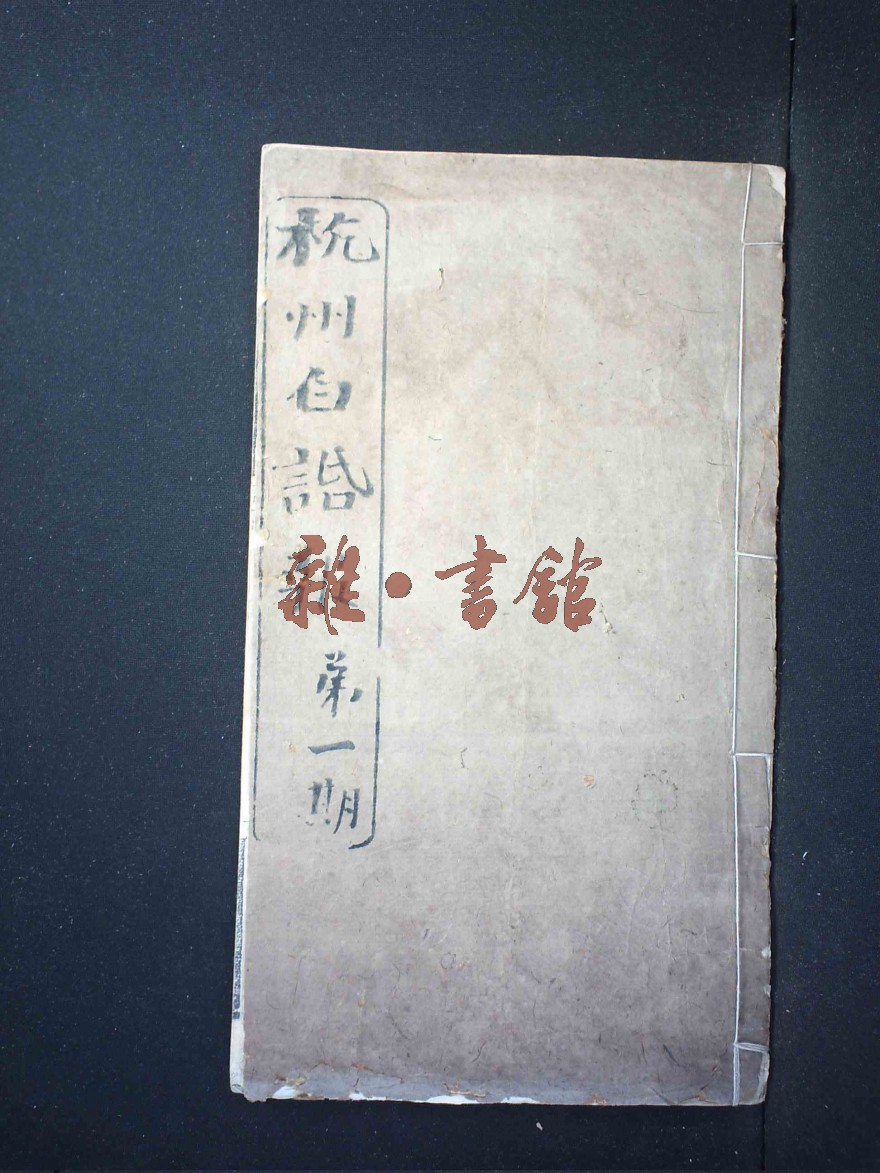 杭州白話報
第一期
雜·書館